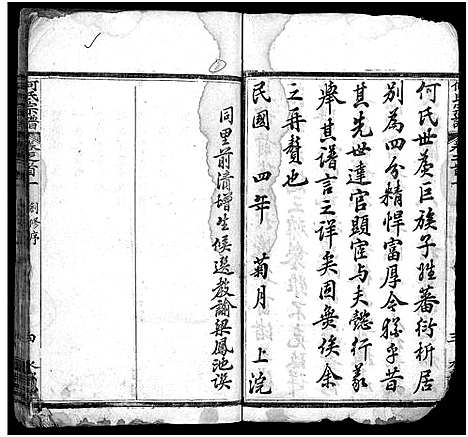 何氏世為巨族子姓蕃衍析居
別為四分精悍富厚今孫子昔
其先世達官顯宦与夫懿行義
舉其譜言之详矣固無俟余
之再贅也
民國 四年 菊月 上浣
同里前清增生候选教諭梁鳳池譔
何氏宗譜
卷首一
創修序